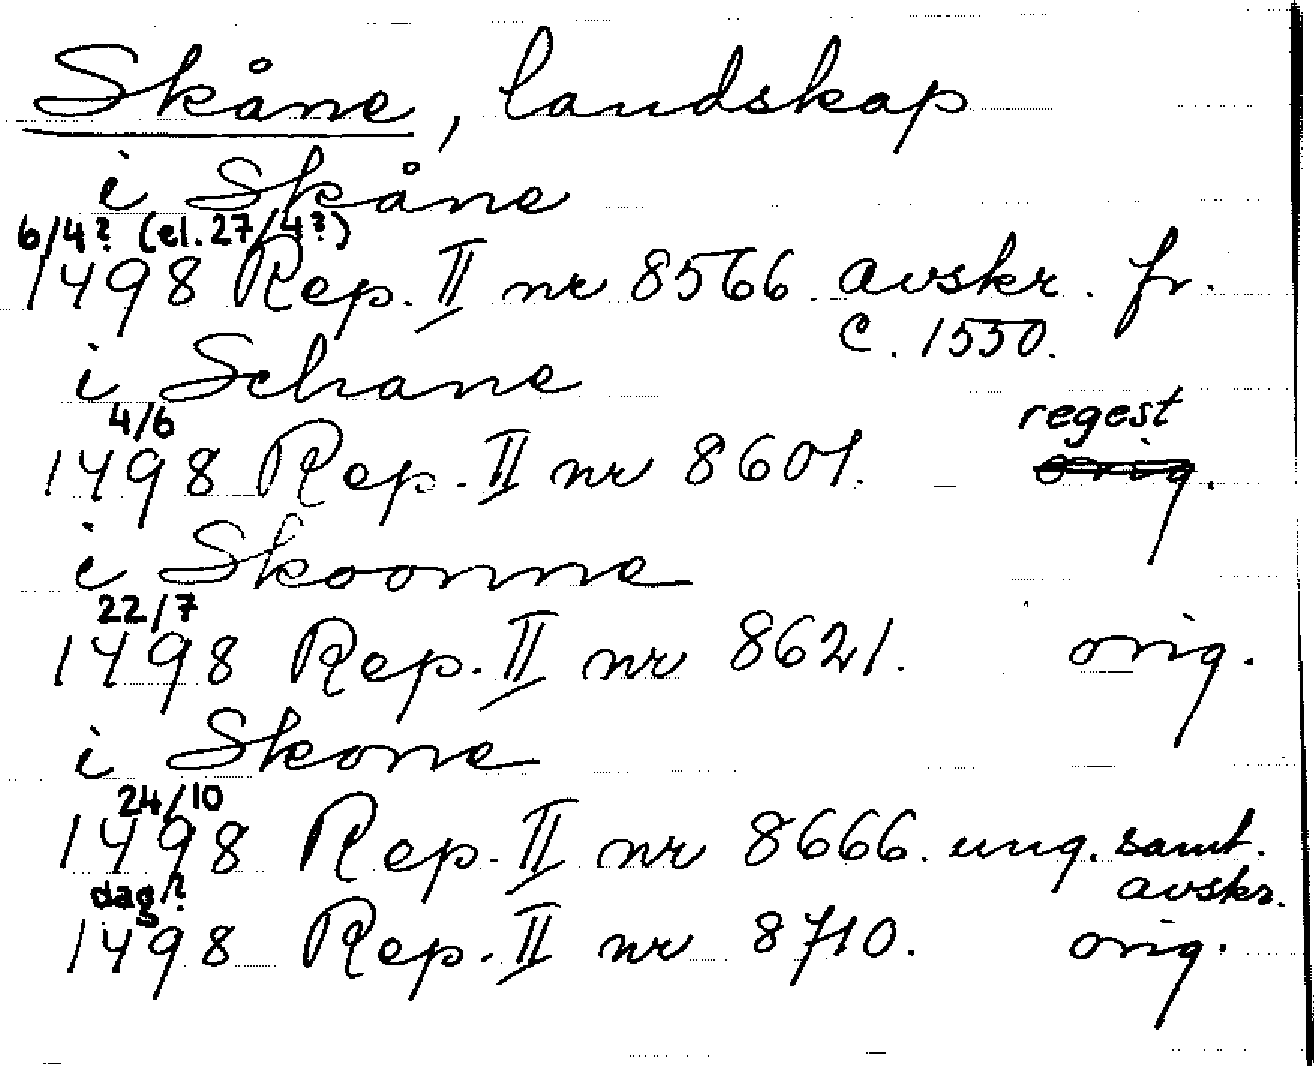 Skåne, landskap
i Skåne
6/4? (el. 27/4?)
1498 Rep. II nr 8566 avskr. fr.
c. 1550.
i Schane
4/6 regest
1498 Rep. II nr 8601. orig.
i Skoonne
22/7
1498 Rep. II nr 8621. orig.
i Skone
24/10
1498 Rep. II nr 8666. ung. samt.
dag? avskr.
1498 Rep. II nr 8710. orig.